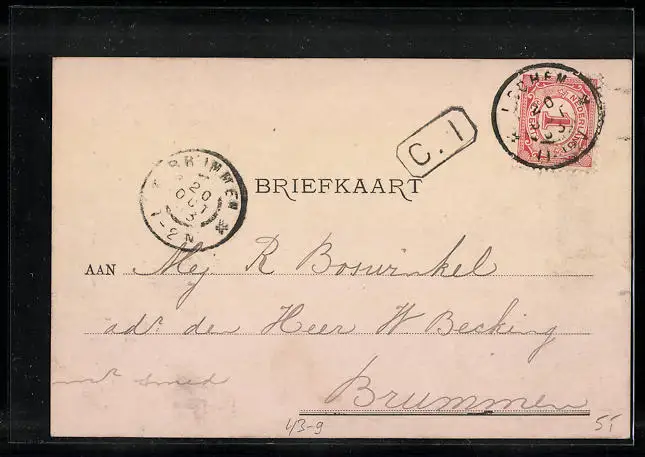 LOCHEM
20
NEDERLAND
1
C. 1
BRUMMEN
20
OCT
03
1-2 N
BRIEFKAART
AAN Mej R Boswinkel
adr. den Heer W Becking
smed
Brummen
43-9
55